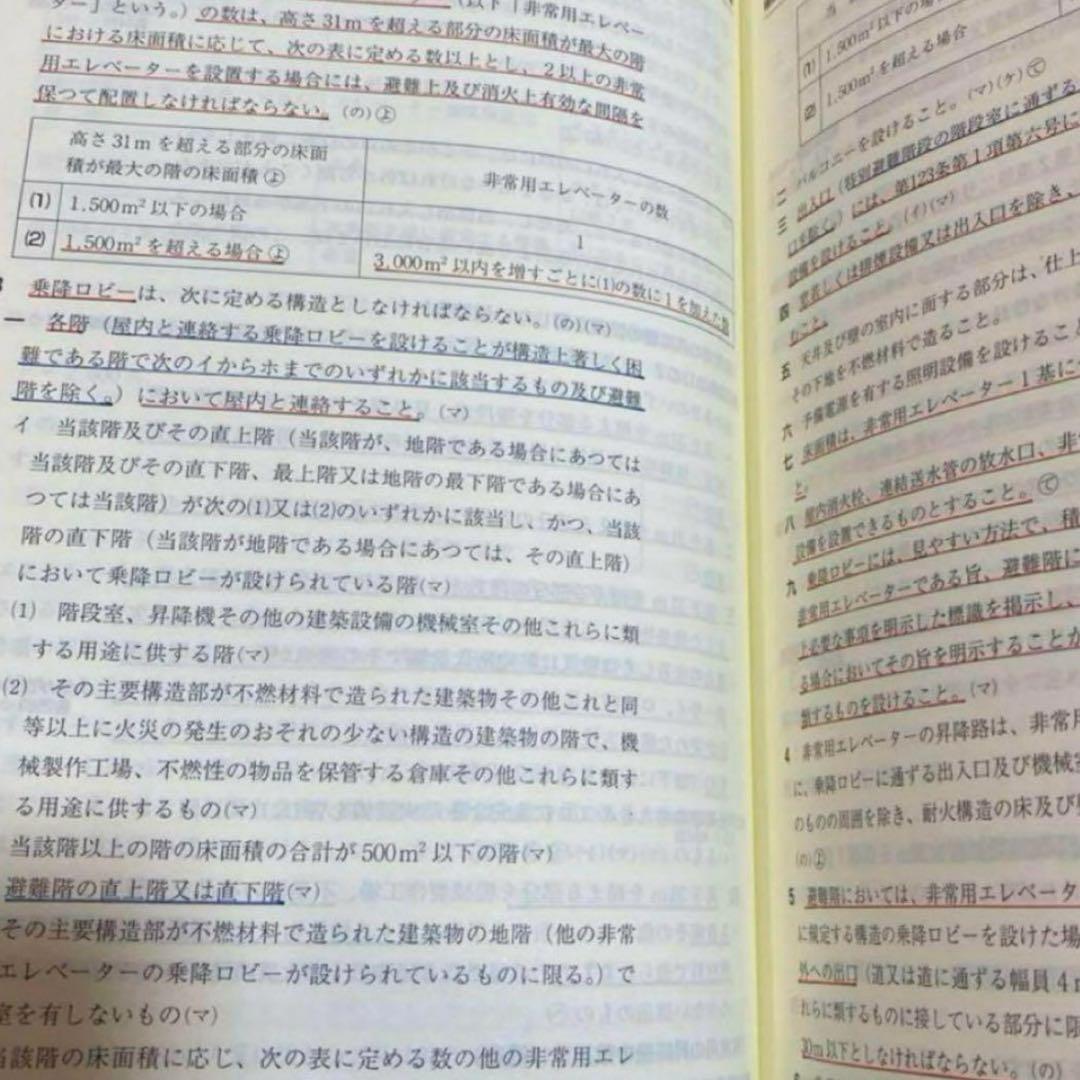 ター」という。）の数は、高さ31mを超える部分の床面積が最大の階
における床面積に応じて、次の表に定める数以上とし、2以上の非常
用エレベーターを設置する場合には、避難上及び消火上有効な間隔を
保つて配置しなければならない。(の)㋵
高さ31mを超える部分の床面
積が最大の階の床面積㋵
非常用エレベーターの数
(1) 1.500m²以下の場合
1
(2) 1,500m²を超える場合㋵
3,000m²以内を増すごとに(1)の数に1を加えた数
乗降ロビーは、次に定める構造としなければならない。(の)(マ)
一 各階（屋内と連絡する乗降ロビーを設けることが構造上著しく困
難である階で次のイからホまでのいずれかに該当するもの及び避難
階を除く。）において屋内と連絡すること。(マ)
イ 当該階及びその直上階（当該階が、地階である場合にあつては
当該階及びその直下階、最上階又は地階の最下階である場合にあ
つては当該階）が次の(1)又は(2)のいずれかに該当し、かつ、当該
階の直下階（当該階が地階である場合にあつては、その直上階）
において乗降ロビーが設けられている階(マ)
(1) 階段室、昇降機その他の建築設備の機械室その他これらに類
する用途に供する階(マ)
(2) その主要構造部が不燃材料で造られた建築物その他これと同
等以上に火災の発生のおそれの少ない構造の建築物の階で、機
械製作工場、不燃性の物品を保管する倉庫その他これらに類す
る用途に供するもの(マ)
当該階以上の階の床面積の合計が500m²以下の階(マ)
避難階の直上階又は直下階(マ)
その主要構造部が不燃材料で造られた建築物の地階（他の非常
エレベーターの乗降ロビーが設けられているものに限る。）で
室を有しないもの(マ)
当該階の床面積に応じ、次の表に定める数の他の非常用エレ
(1) 1,500m²以下の場合
(2) 1,500m²を超える場合
二 バルコニーを設けること。(マ)(ケ)㋢
三 出入口（特別避難階段の階段室に通ずる
口を除く。）には、第123条第1項第六号に
設備を設けること。(イ)(マ)
四 窓若しくは排煙設備又は出入口を除き、
むこと。
五 天井及び壁の室内に面する部分は、仕上
その下地を不燃材料で造ること。
六 予備電源を有する照明設備を設けること
七 床面積は、非常用エレベーター1基につ
と。
八 屋内消火栓、連結送水管の放水口、非
設備を設置できるものとすること。㋢
九 乗降ロビーには、見やすい方法で、積
非常用エレベーターである旨、避難階に
上必要な事項を明示した標識を掲示し、
る場合においてその旨を明示することが
類するものを設けること。(マ)
4 非常用エレベーターの昇降路は、非常
に、乗降ロビーに通ずる出入口及び機械室
のものの周囲を除き、耐火構造の床及び
(の)㋵
5 避難階においては、非常用エレベータ
に規定する構造の乗降ロビーを設けた場
外への出口（道又は道に通ずる幅員4m
れらに類するものに接している部分に限
30m以下としなければならない。(の)